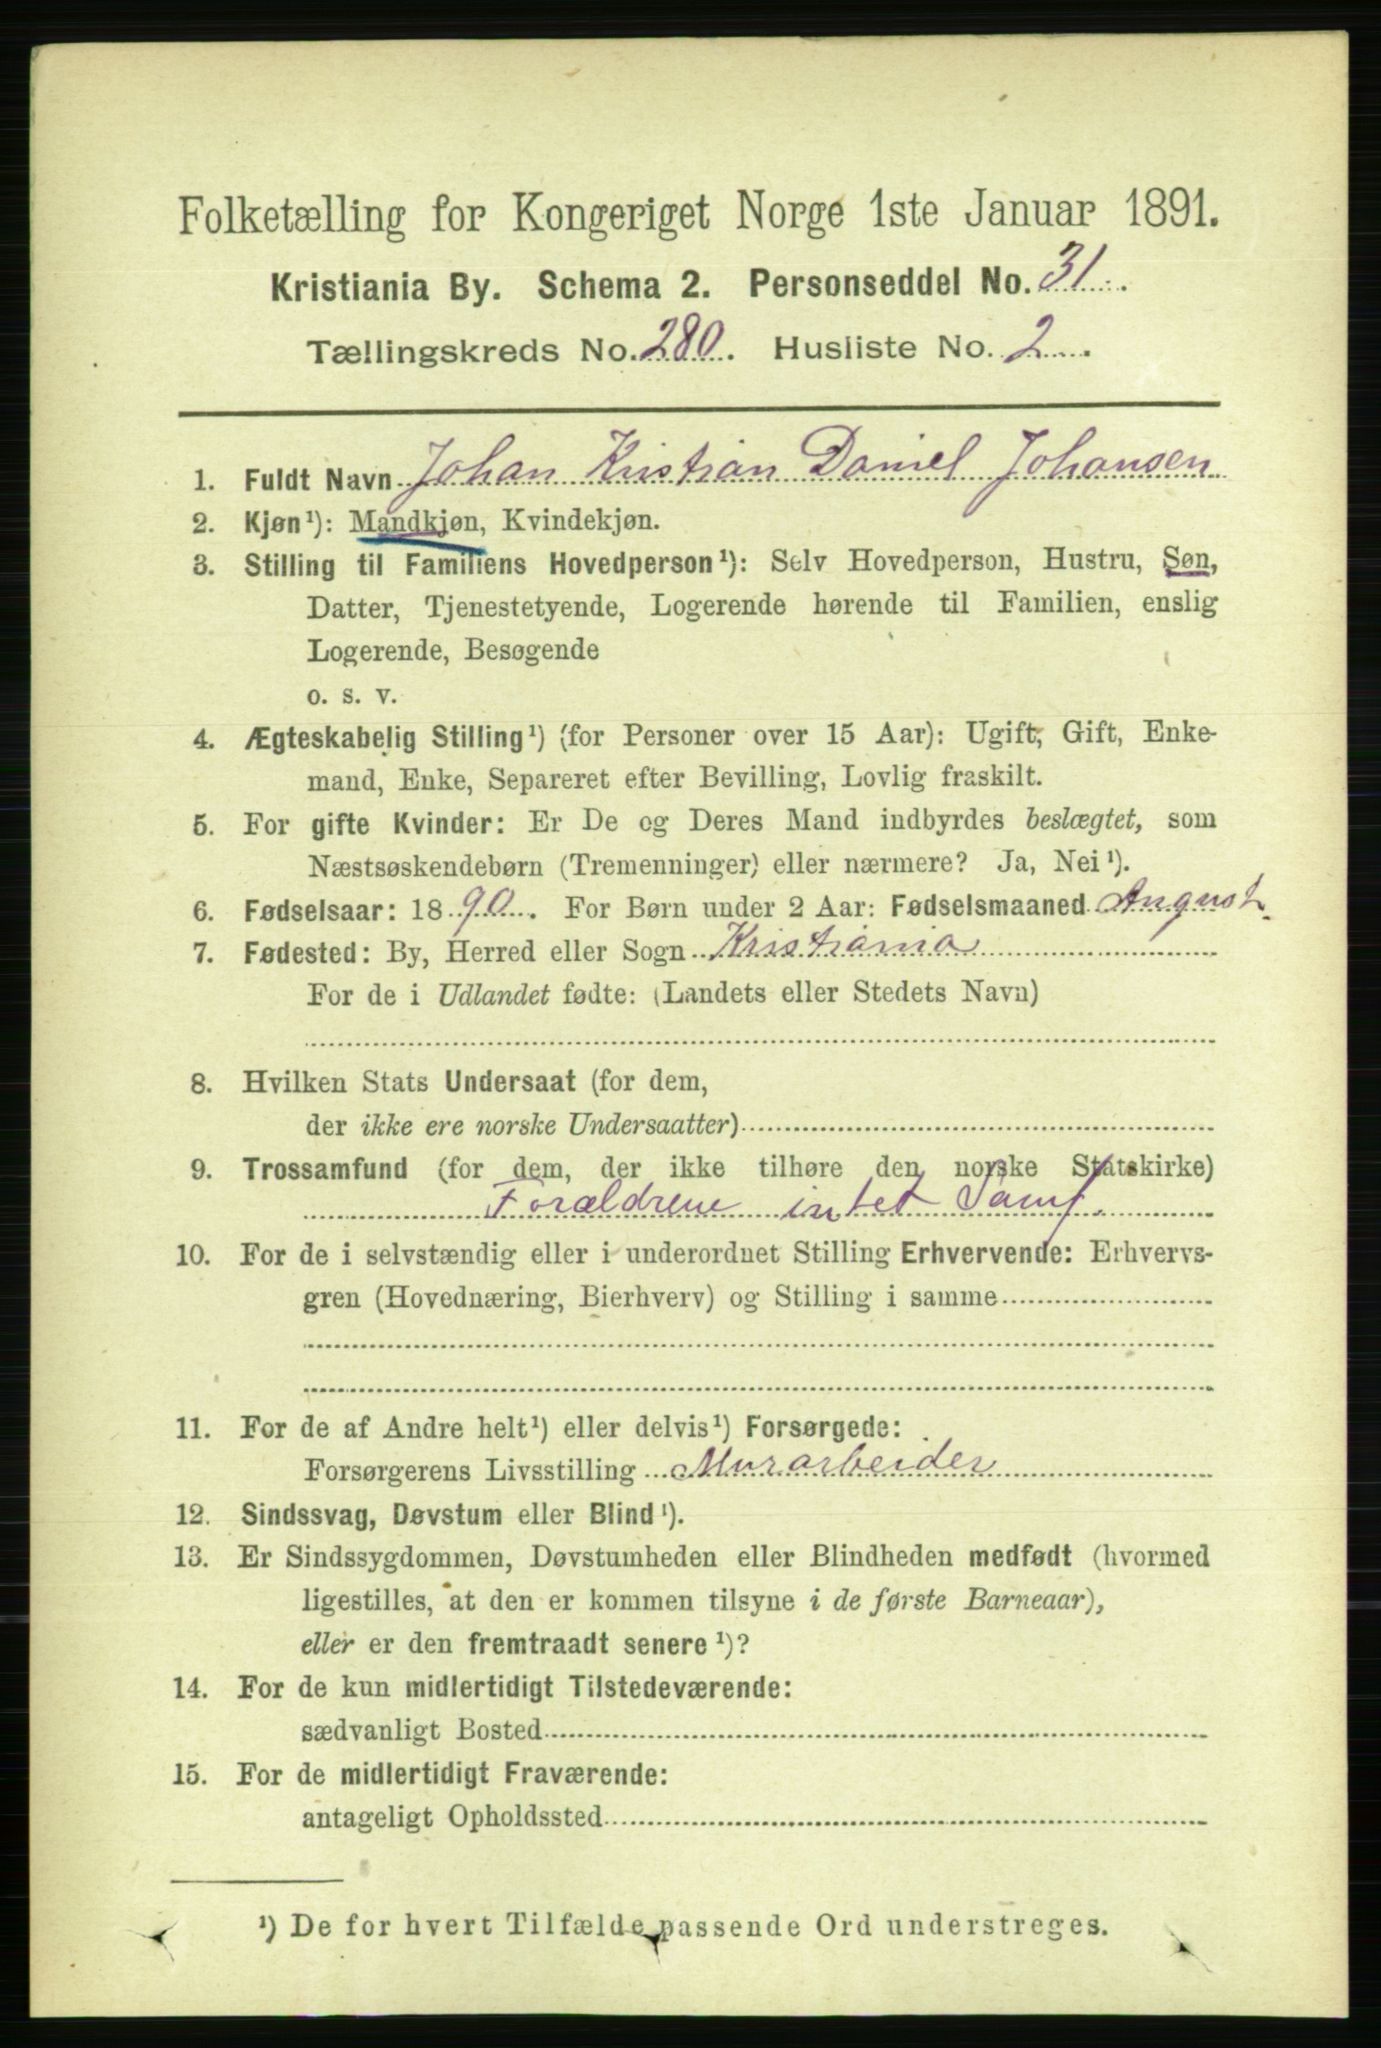 Folketælling for Kongeriget Norge 1ste Januar 1891.
Kristiania By. Schema 2. Personseddel No. 31.
Tællingskreds No. 280. Husliste No. 2.
1. Fuldt Navn Johan Kristian Daniel Johansen
2. Kjøn¹): Mandkjøn, Kvindekjøn.
3. Stilling til Familiens Hovedperson¹): Selv Hovedperson, Hustru, Søn,
Datter, Tjenestetyende, Logerende hørende til Familien, enslig
Logerende, Besøgende
o. s. v.
4. Ægteskabelig Stilling¹) (for Personer over 15 Aar): Ugift, Gift, Enke-
mand, Enke, Separeret efter Bevilling, Lovlig fraskilt.
5. For gifte Kvinder: Er De og Deres Mand indbyrdes beslægtet, som
Næstsøskendebørn (Tremenninger) eller nærmere? Ja, Nei¹).
6. Fødselsaar: 1890. For Børn under 2 Aar: Fødselsmaaned August.
7. Fødested: By, Herred eller Sogn Kristiania
For de i Udlandet fødte: (Landets eller Stedets Navn)
8. Hvilken Stats Undersaat (for dem,
der ikke ere norske Undersaatter)
9. Trossamfund (for dem, der ikke tilhøre den norske Statskirke)
Forældrene intet Samf.
10. For de i selvstændig eller i underordnet Stilling Erhvervende: Erhvervs-
gren (Hovednæring, Bierhverv) og Stilling i samme
11. For de af Andre helt¹) eller delvis¹) Forsørgede:
Forsørgerens Livsstilling Murarbeider
12. Sindssvag, Døvstum eller Blind¹).
13. Er Sindssygdommen, Døvstumheden eller Blindheden medfødt (hvormed
ligestilles, at den er kommen tilsyne i de første Barneaar),
eller er den fremtraadt senere¹)?
14. For de kun midlertidigt Tilstedeværende:
sædvanligt Bosted
15. For de midlertidigt Fraværende:
antageligt Opholdssted
¹) De for hvert Tilfælde passende Ord understreges.